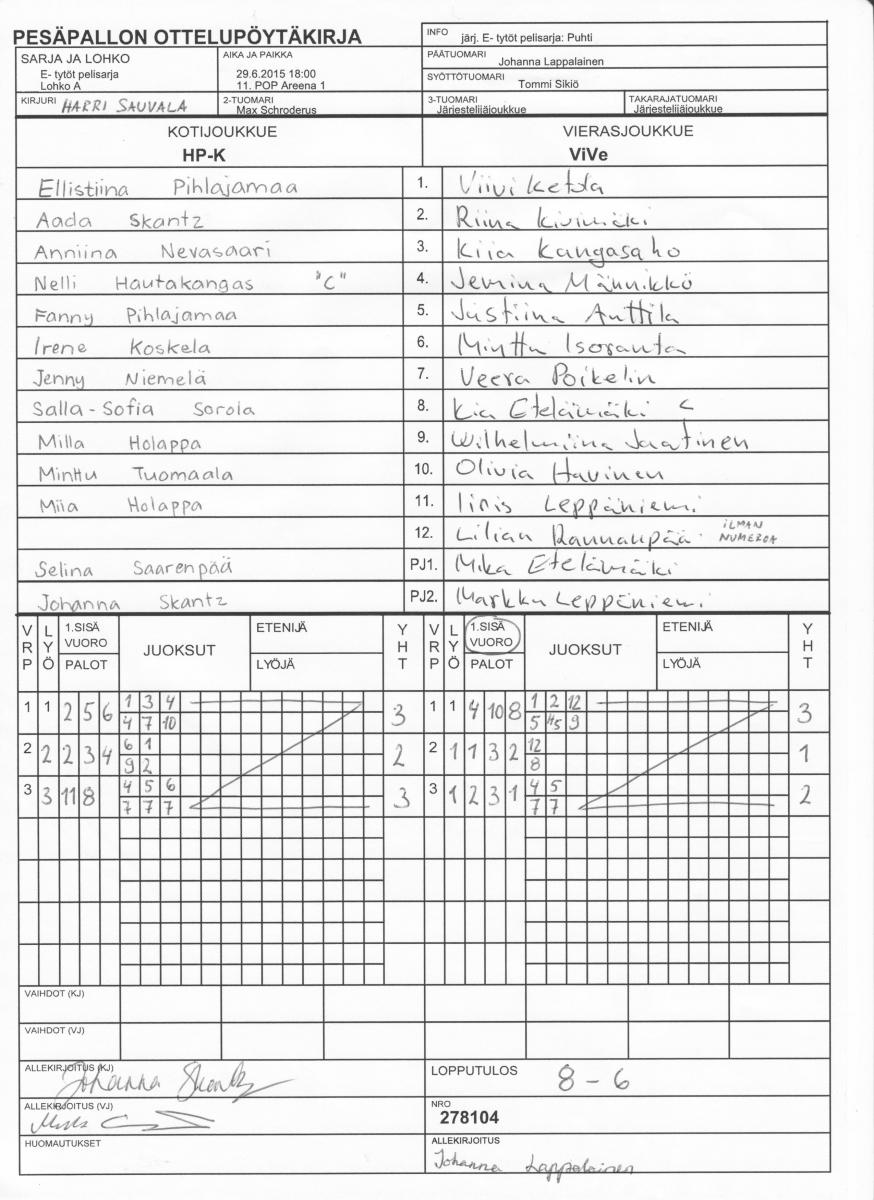 PESÄPALLON OTTELUPÖYTÄKIRJA
INFO järj. E- tytöt pelisarja: Puhti
SARJA JA LOHKO
E- tytöt pelisarja
Lohko A
AIKA JA PAIKKA
29.6.2015 18:00
11. POP Areena 1
PÄÄTUOMARI
Johanna Lappalainen
SYÖTTÖTUOMARI
Tommi Sikiö
KIRJURI HARRI SAUVALA
2-TUOMARI
Max Schroderus
3-TUOMARI
Järjestelijäjoukkue
TAKARAJATUOMARI
Järjestelijäjoukkue
KOTIJOUKKUE
HP-K
VIERASJOUKKUE
ViVe
Ellistiina Pihlajamaa 1. Viivi Ketola
Aada Skantz 2. Riina Kivimäki
Anniina Nevasaari 3. Kiia Kangasaho
Nelli Hautakangas "C" 4. Jemina Männikkö
Fanny Pihlajamaa 5. Justiina Anttila
Irene Koskela 6. Minttu Isoranta
Jenny Niemelä 7. Veera Poikelin
Salla-Sofia Sorola 8. Kia Etelämäki C
Milla Holappa 9. Wilhelmiina Jaatinen
Minttu Tuomaala 10. Olivia Havinen
Miia Holappa 11. Iiris Leppäniemi
12. Lilian Rannanpää ILMAN NUMEROA
Selina Saarenpää PJ1. Mika Etelämäki
Johanna Skantz PJ2. Markku Leppäniemi
VRP LYÖ 1.SISÄ VUORO PALOT JUOKSUT ETENIJÄ LYÖJÄ YHT VRP LYÖ 1.SISÄ VUORO PALOT JUOKSUT ETENIJÄ LYÖJÄ YHT
1 1 2 5 6 1 3 4 3 1 1 4 10 8 1 2 12 3
4 7 10 5 45 9
2 2 2 3 4 6 1 2 2 1 1 3 2 12 1
9 2 8
3 3 11 8 4 5 6 3 3 1 2 3 1 4 5 2
7 7 7 7 7
VAIHDOT (KJ)
VAIHDOT (VJ)
ALLEKIRJOITUS (KJ) Johanna Skantz
LOPPUTULOS 8 - 6
ALLEKIRJOITUS (VJ)
NRO
278104
HUOMAUTUKSET
ALLEKIRJOITUS
Johanna Lappalainen